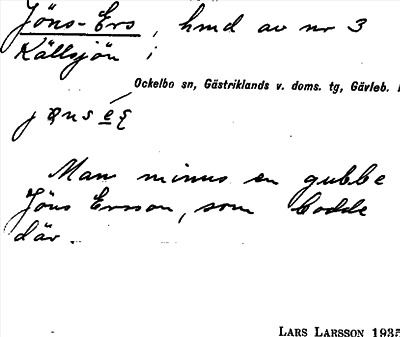 Jöns-Ers, hmd av nr 3
Källsjön i
Ockelbo sn, Gästriklands v. doms. tg, Gävleb.
Man minns en gubbe
Jöns Ersson, som bodde
där.
LARS LARSSON 1935